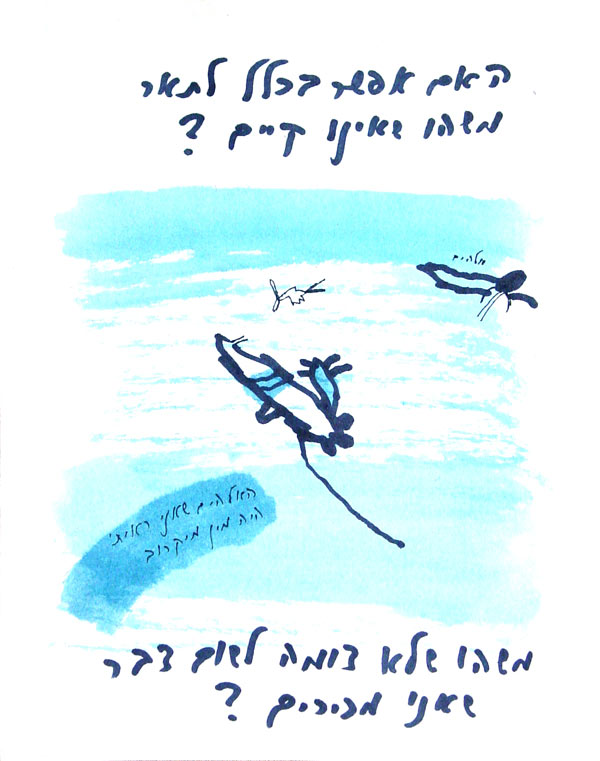 האם אפשר בכלל לתאר
משהו שאינו קיים ?
אלהים
האלהים שאני ראיתי
היה מין מיקרוב
משהו שלא דומה לשום דבר
שאני מכירים ?